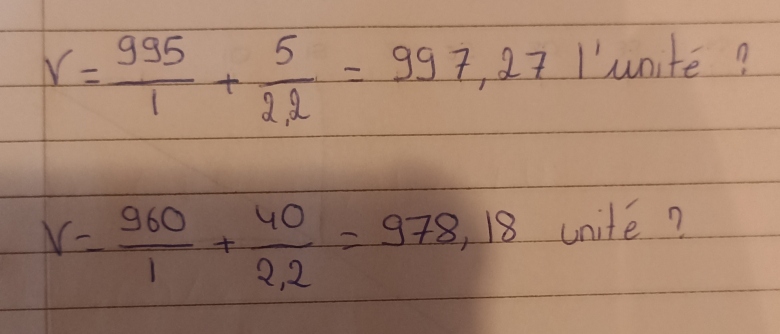 V = 995/1 + 5/2,2 = 997,27 l'unité ?
V = 960/1 + 40/2,2 = 978,18 unité ?